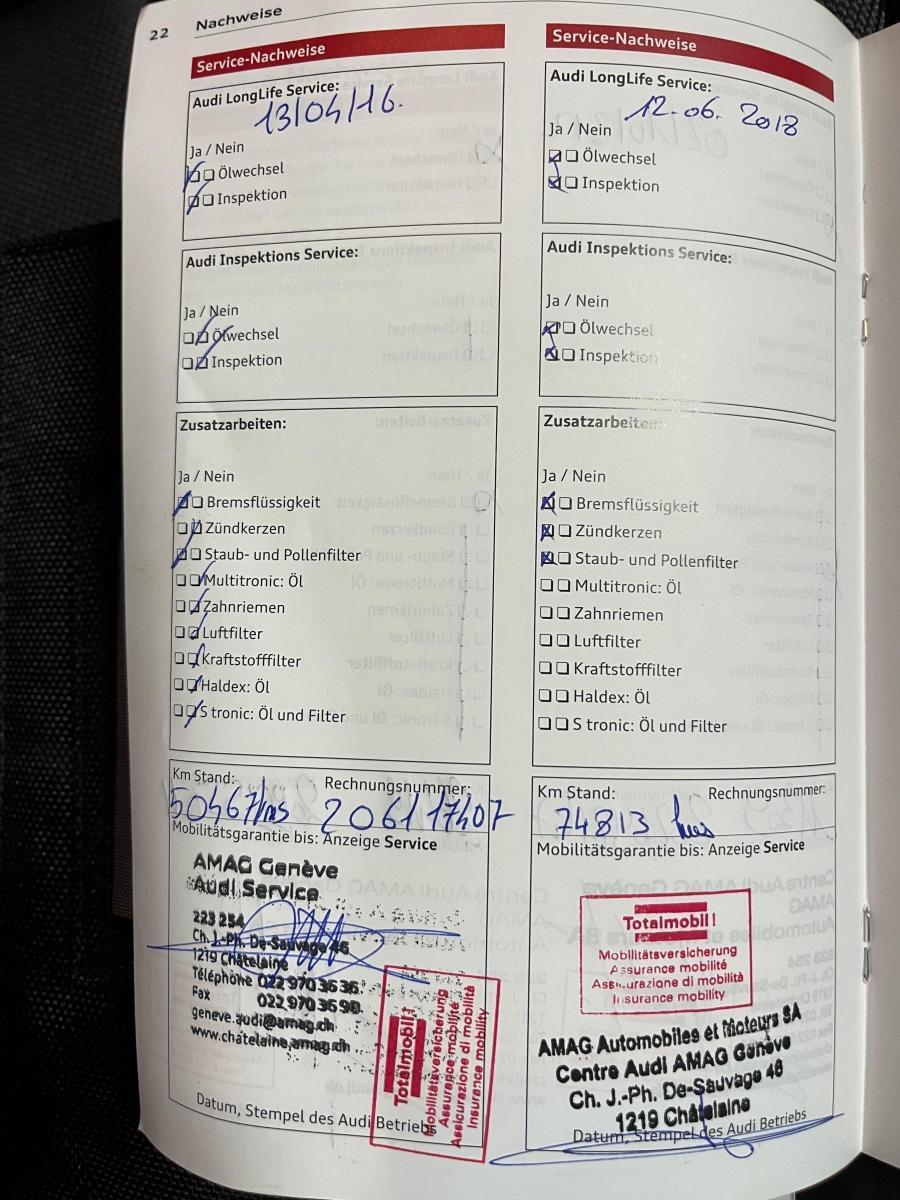 22 Nachweise
Service-Nachweise
Audi LongLife Service:
13/04/16.
Ja / Nein
Ölwechsel
Inspektion
Audi Inspektions Service:
Ja / Nein
Ölwechsel
Inspektion
Zusatzarbeiten:
Ja / Nein
Bremsflüssigkeit
Zündkerzen
Staub- und Pollenfilter
Multitronic: Öl
Zahnriemen
Luftfilter
Kraftstofffilter
Haldex: Öl
S tronic: Öl und Filter
Km Stand: Rechnungsnummer:
50467 kms 206117407
Mobilitätsgarantie bis: Anzeige Service
AMAG Genève
Audi Service
223 254
Ch. J.-Ph. De-Sauvage 46
1219 Châtelaine
Téléphone 022 970 36 36
Fax 022 970 36 90
geneve.audi@amag.ch
www.chatelaine.amag.ch
Totalmobil!
Mobilitätsversicherung
Assurance mobilité
Assicurazione di mobilità
Insurance mobility
Datum, Stempel des Audi Betriebs
Service-Nachweise
Audi LongLife Service:
12.06. 2018
Ja / Nein
Ölwechsel
Inspektion
Audi Inspektions Service:
Ja / Nein
Ölwechsel
Inspektion
Zusatzarbeiten:
Ja / Nein
Bremsflüssigkeit
Zündkerzen
Staub- und Pollenfilter
Multitronic: Öl
Zahnriemen
Luftfilter
Kraftstofffilter
Haldex: Öl
S tronic: Öl und Filter
Km Stand: Rechnungsnummer:
74813 kms
Mobilitätsgarantie bis: Anzeige Service
Totalmobil!
Mobilitätsversicherung
Assurance mobilité
Assicurazione di mobilità
Insurance mobility
AMAG Automobiles et Moteurs SA
Centre Audi AMAG Genève
Ch. J.-Ph. De-Sauvage 46
1219 Châtelaine
Datum, Stempel des Audi Betriebs